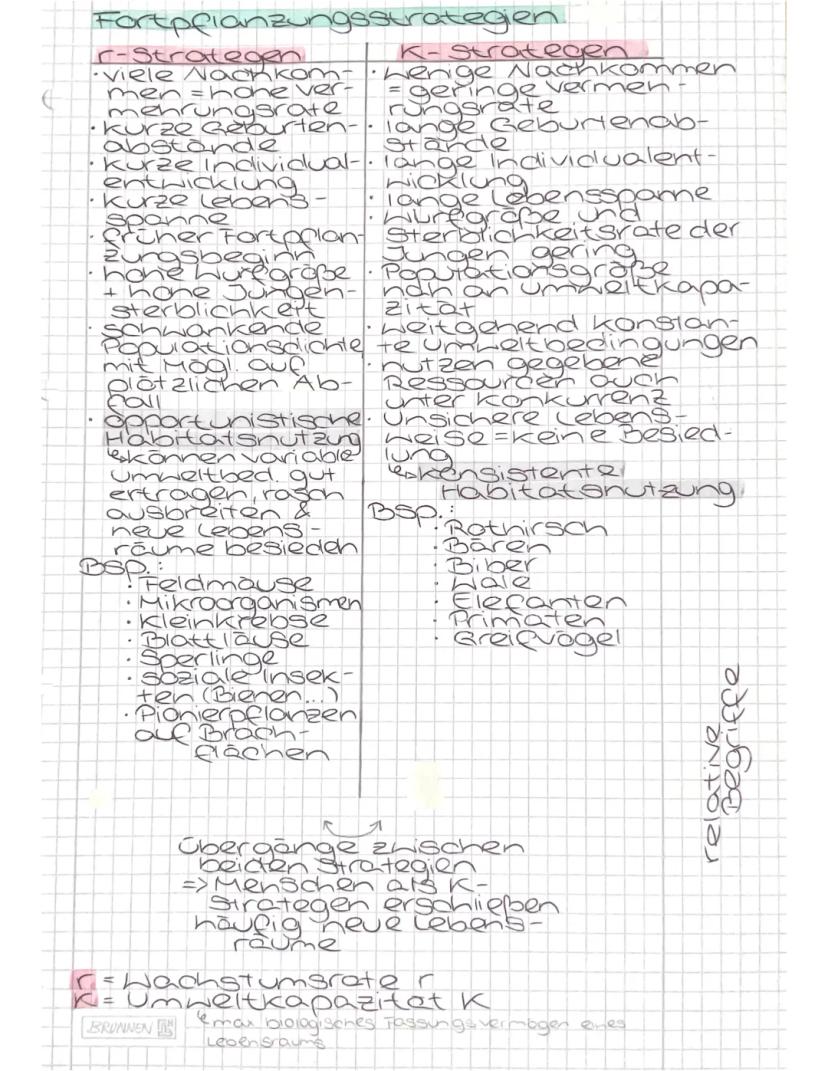 Fortpflanzungsstrategien
r-Strategen
· viele Nachkom-
men = hohe Ver-
mehrungsrate
· kurze Geburten-
abstände
· kurze Individual-
entwicklung
· kurze Lebens-
spanne
· früher Fortpflan-
zungsbeginn
· hohe Wurfgröße
+ hohe Jungen-
sterblichkeit
· schwankende
Populationsdichte
mit Mögl. auf
plötzlichen Ab-
fall
· opportunistische
Habitatsnutzung
↳ können variable
Umweltbed. gut
ertragen, rasch
ausbreiten &
neue Lebens-
räume besiedeln
Bsp.:
· Feldmäuse
· Mikroorganismen
· Kleinkrebse
· Blattläuse
· Sperlinge
· soziale Insek-
ten (Bienen...)
· Pionierpflanzen
auf Brach-
flächen
K-Strategen
· Wenige Nachkommen
= geringe Vermeh-
rungsrate
· lange Geburtenab-
stände
· lange Individualent-
wicklung
· lange Lebensspanne
· Wurfgröße und
Sterblichkeitsrate der
Jungen gering
· Populationsgröße
nah an Umweltkapa-
zität
· weitgehend konstan-
te Umweltbedingungen
· nutzen gegebene
Ressourcen auch
unter Konkurrenz
· Unsichere Lebens-
weise = keine Besied-
lung
↳ konsistente
Habitatsnutzung
Bsp.:
· Rothirsch
· Bären
· Biber
· Wale
· Elefanten
· Primaten
· Greifvögel
relative
Begriffe
Übergänge zwischen
beiden Strategien
=> Menschen als K-
Strategen erschließen
häufig neue Lebens-
räume
r = Wachstumsrate r
K = Umweltkapazität K
↳ max biologisches Fassungsvermögen eines
Lebensraums
BRUNNEN